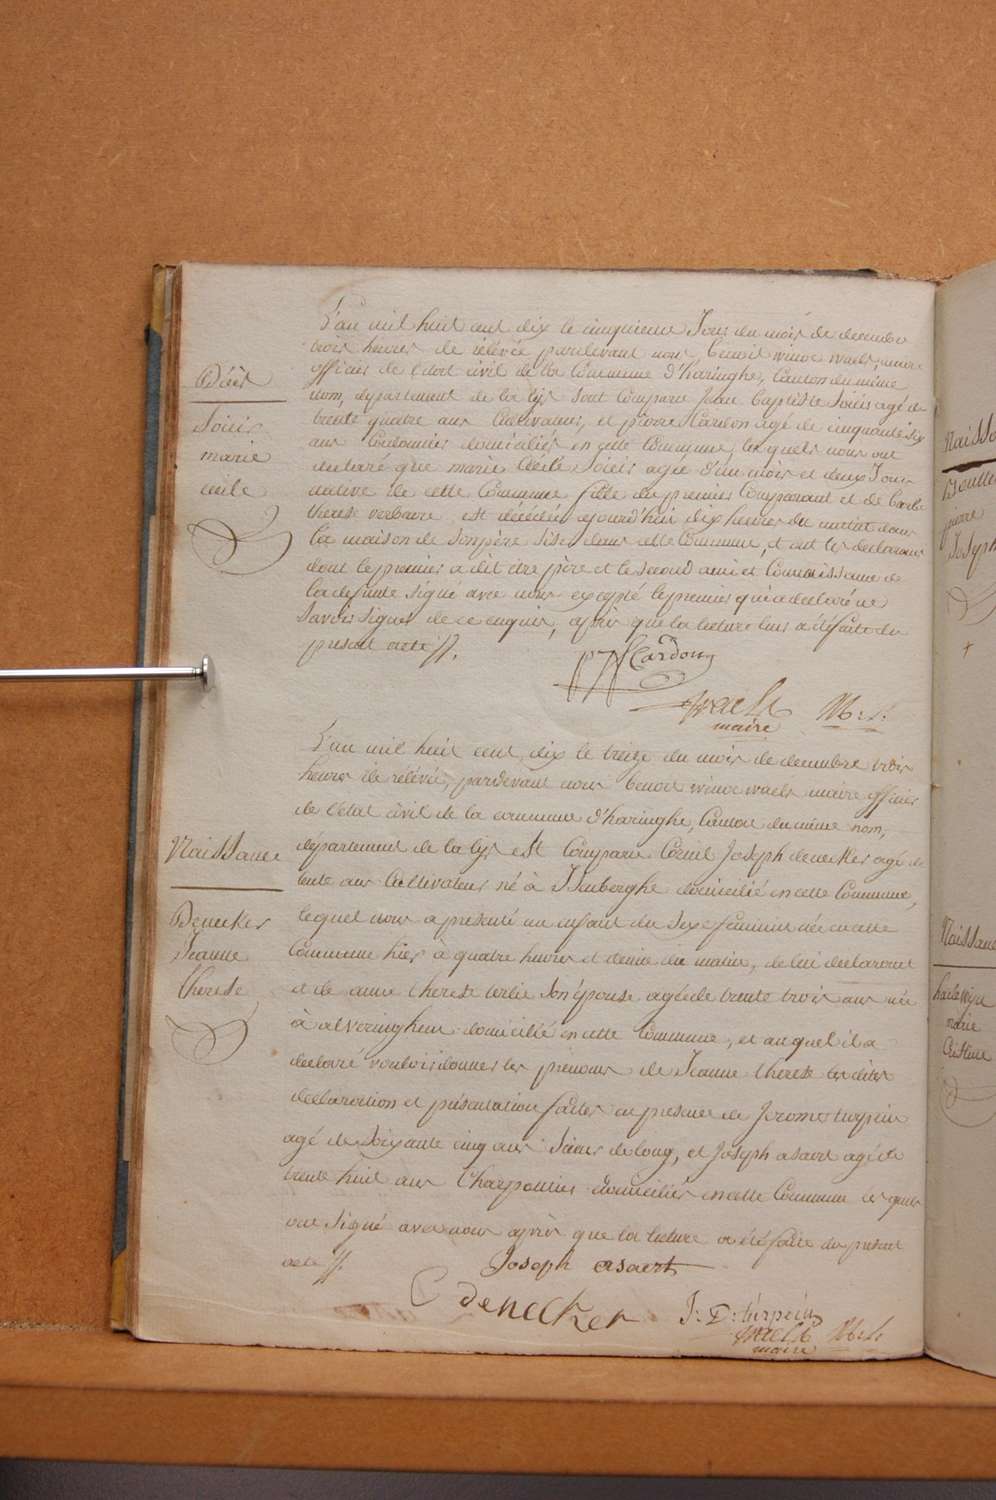 Décès
Soleis
marie
cecile
L'an mil huit cent dix le cinquieme Jour du mois de decembre
trois heures de rélévée pardevant nous, benoit winoc waels, maire
officier de l'état civil de la Commune d'haringhe, Canton du même
nom, département de la lÿs sont Comparu Jean baptiste Soleis agé de
trente quatre ans Cultivateur, et pierre Cardon agé de cinquante six
ans Cordonnier domiciliés en cette Commune, lesquels nous ont
declaré que marie Cécile Soleis agée d'un mois et deux Jours
native de cette Commune fille du premier Comparant et de barbe
therese verbaere est décédée ajourd'hui dix heures du matin dans
la maison de Son père Sise dans cette Commune, et ont les declarans
dont le premier a dit etre père et le Second ami et Connaissance de
la defunte Signé avec nous excepté le premier qui a declaré ne
Savoir Signer de ce enquis, après que la lecture leur a été faite du
présent acte //.
p Cardon
waels M:r
maire
Naissance
Denecker
Jeanne
therese
L'an mil huit cent, dix le treize du mois de decembre trois
heures de rélévée, pardevant nous benoit winoc waels maire officier
de l'état civil de la commune d'haringhe, Canton du même nom,
département de la lÿs est Comparu Cornil Joseph denecker agé de
trente ans Cultivateur né à Isenberghe domicilié en cette Commune,
lequel nous a présenté un enfant du Sexe féminin née en cette
Commune hier à quatre heures et demie du matin, de lui declarant
et de anne therese Son épouse agée de trente trois ans née
à alveringhem domicilié en cette Commune, et auquel il a
declaré vouloir donner les prénoms de Jeanne therese les dites
declaration et présentation faites en présence de Jerome turpein
agé de Soixante cinq ans Scieur de long, et Joseph asaert agé de
trente huit ans Charpentier domiciliés en cette Commune les quels
ont Signé avec nous après que la lecture a été faite du présent
acte //.
Joseph asaert
C denecker
J: D: turpein
waels M:r
maire
Naissa
Boutte
pierre
Joseph
Naissanc
marie
Cristine